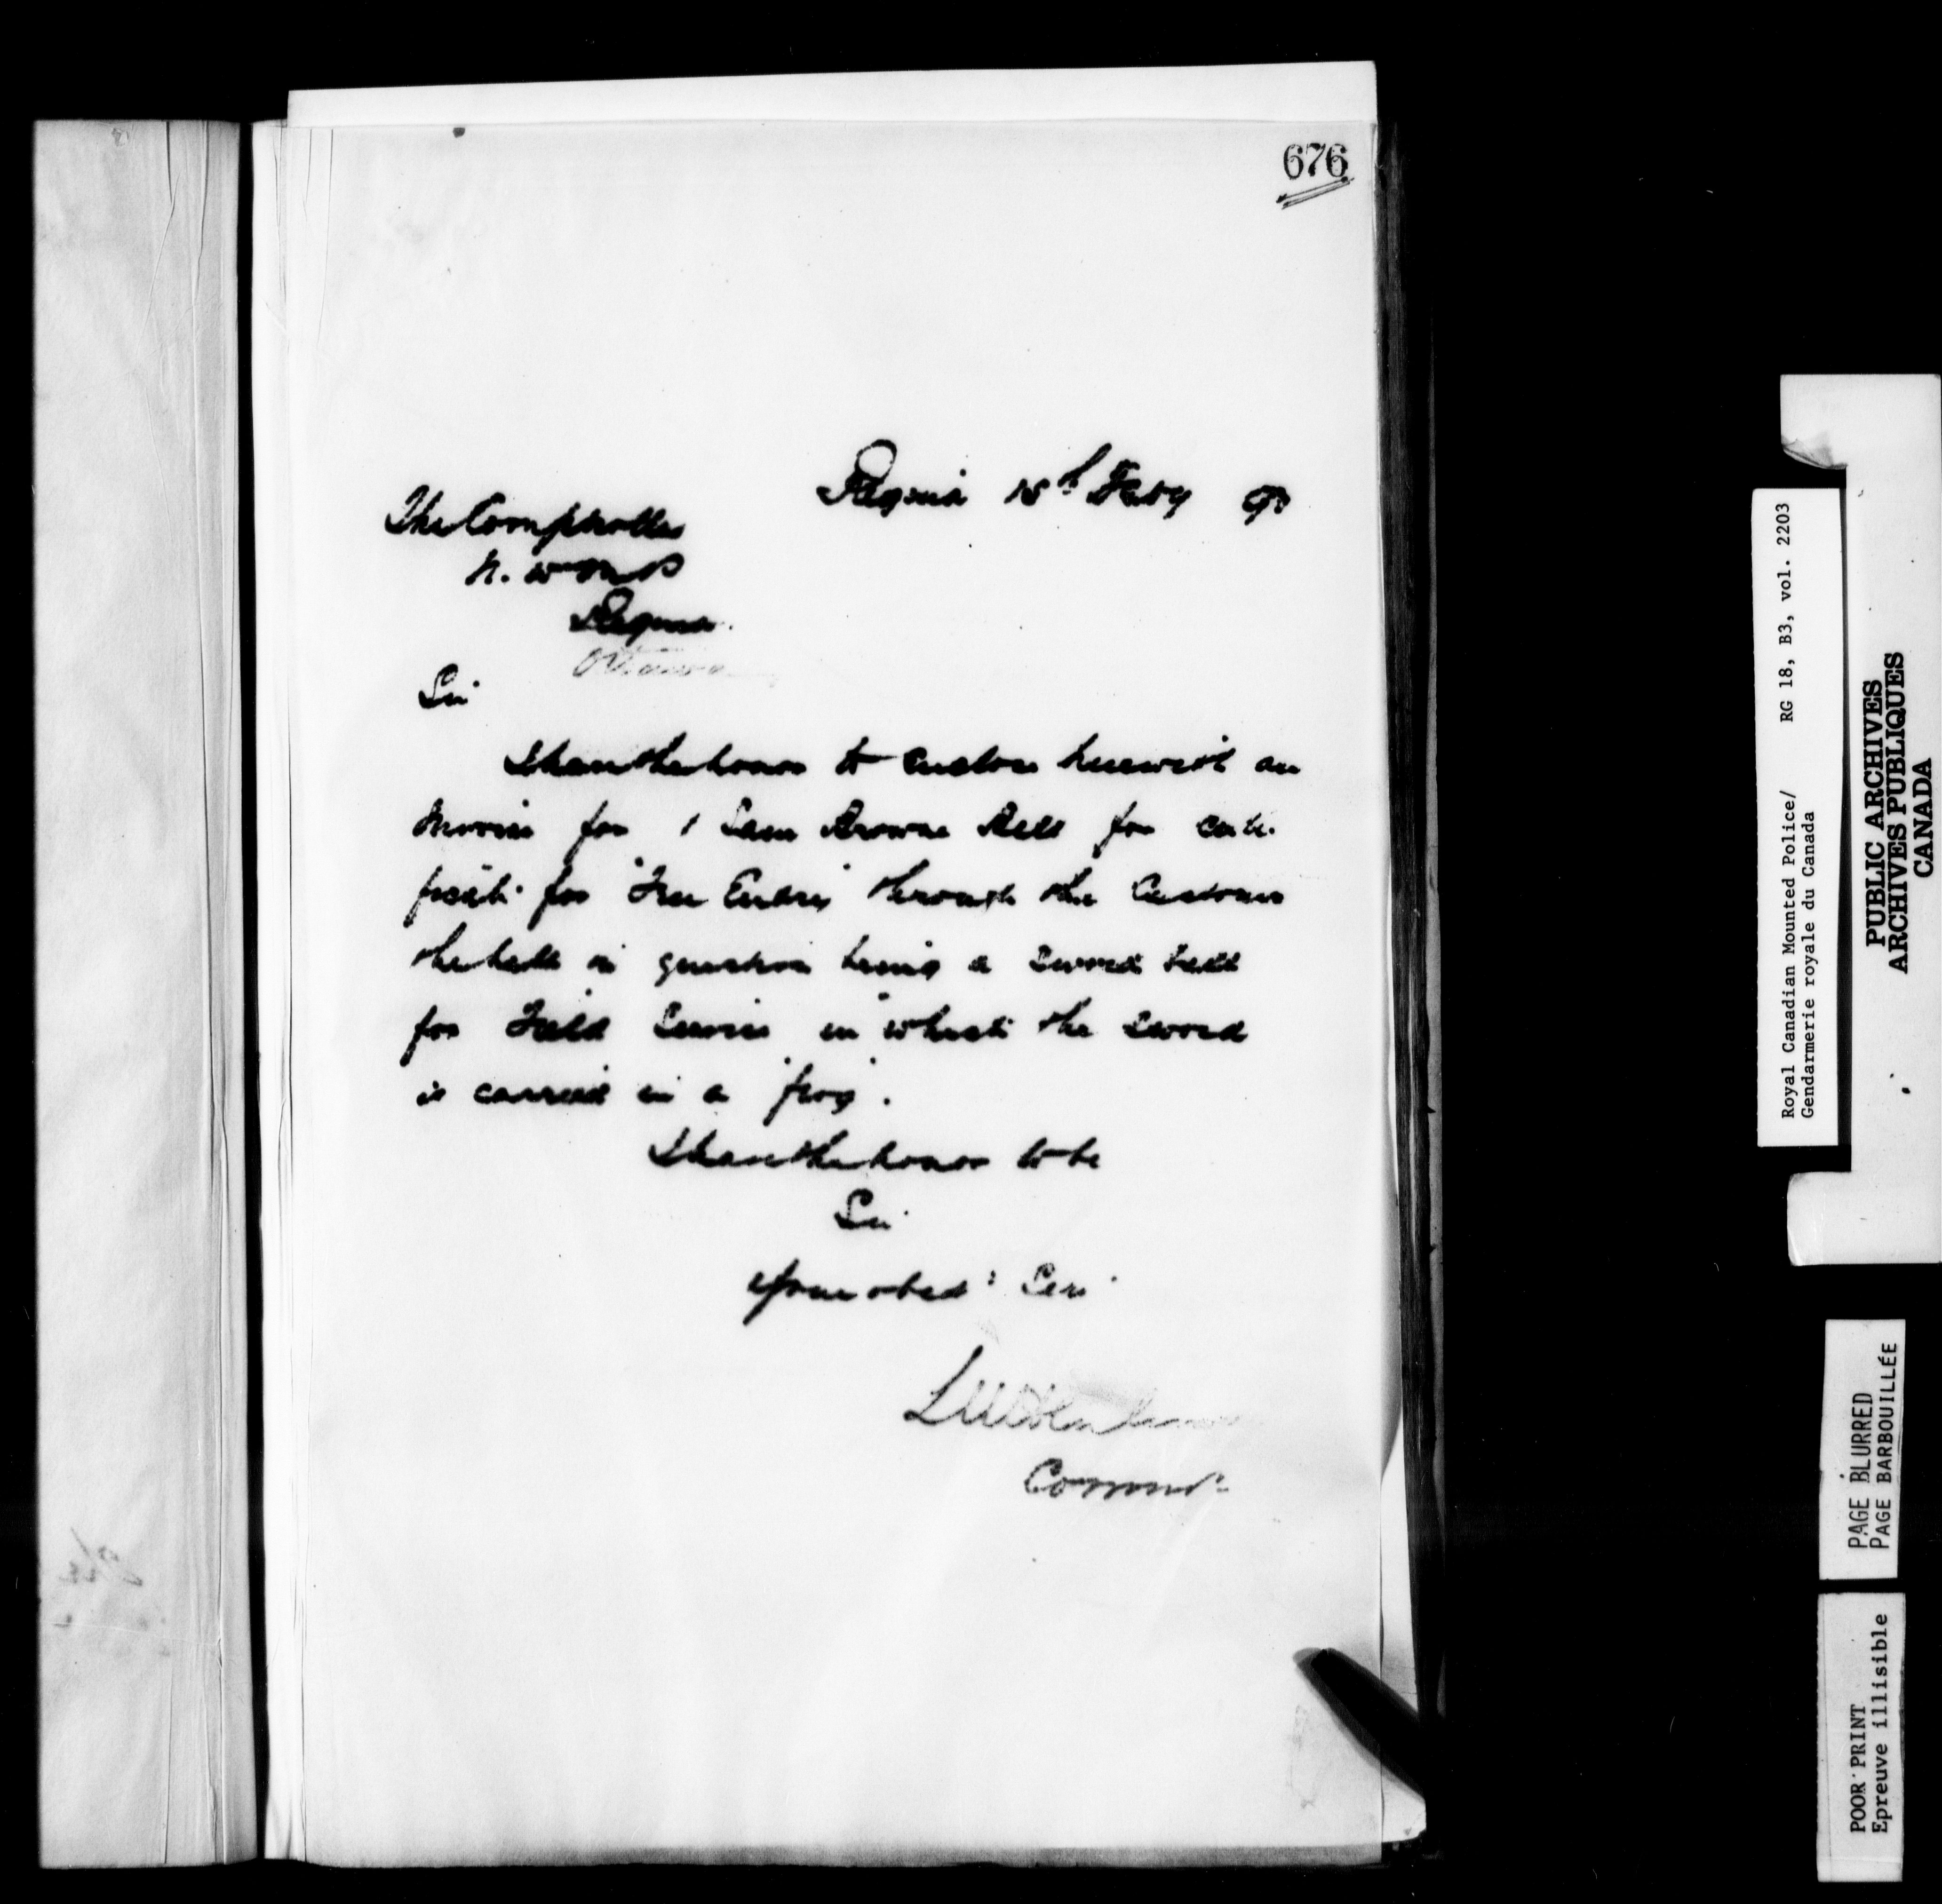 676
Regina 18th Feby 93
The Comptroller
N. W. M. P
Regina.
Ottawa
Sir
I have the honor to enclose herewith an
Invoice for 1 Sam Browne Belt for
for "Free Entry" through the Customs
the belt in question being a sword belt
for "Field Service" in which the sword
is carried in a "frog".
I have the honor to be
Sir
Your obed: Serv
LWHerchmer
Commr
Royal Canadian Mounted Police/ RG 18, B3, vol. 2203
Gendarmerie royale du Canada
PUBLIC ARCHIVES
ARCHIVES PUBLIQUES
CANADA
PAGE BLURRED
PAGE BARBOUILLÉE
POOR PRINT
Epreuve illisible